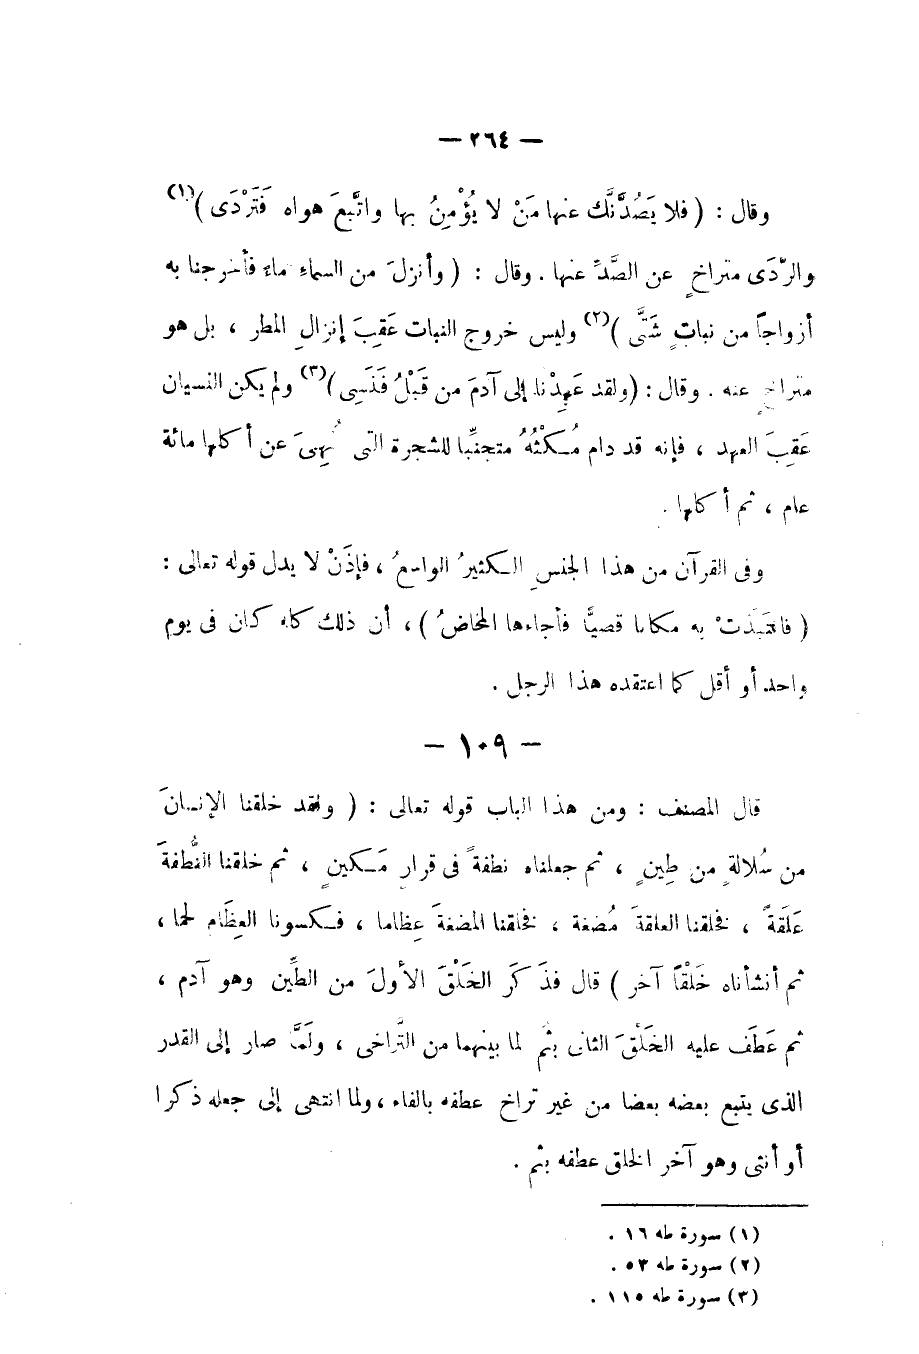 — ٢٦٤ —
وقال : ( فلا يَصُدَّنَّك عنها مَنْ لا يُؤْمِنُ بها واتَّبعَ هواه فَتَرْدَى )(١)
والرَّدَى متراخٍ عن الصَّدِّ عنها . وقال : ( وأنزلَ من السماءِ ماءً فأخرجنا به
أزواجاً من نباتٍ شَتَّى )(٢) وليس خروج النبات عَقِبَ إنزالِ المطر ، بل هو
متراخٍ عنه . وقال : (ولقد عَهِدْنا إلى آدمَ من قَبْلُ فَنَسِى )(٣) ولم يكن النسيان
عَقِبَ العهد ، فإنه قد دام مُكْثُهُ متجنِّبا للشجرة التى نُهِىَ عن أكلها مائة
عام ، ثم أكلها .
وفى القرآن من هذا الجنسِ الكثيرُ الواسعُ ، فإذَنْ لا يدل قوله تعالى :
( فانتَبَذَتْ به مكانا قصيًّا فأجاءها المخاضُ ) ، أن ذلك كله كان فى يوم
واحد أو أقل كما اعتقده هذا الرجل .
— ١٠٩ —
قال المصنف : ومن هذا الباب قوله تعالى : ( ولقد خلقنا الإنسانَ
من سُلالةٍ من طِينٍ ، ثم جعلناه نطفةً فى قرارٍ مَكينٍ ، ثم خلقنا النُّطفةَ
عَلَقةً ، فخلقنا العلقةَ مُضغة ، فخلقنا المضغةَ عِظاما ، فكسونا العِظَام لحما ،
ثم أنشأناه خَلْقاً آخر ) قال فذَكَر الخَلْقَ الأولَ من الطِّين وهو آدم ،
ثم عَطَف عليه الخَلْقَ الثانى بثُم لما بينهما من التَّراخى ، ولَمَّا صار إلى القدر
الذى يتبع بعضه بعضا من غير تراخ عطفه بالفاء ، ولما انتهى إلى جعله ذكرا
أو أنثى وهو آخر الخلق عطفه بثم .
(١) سورة طه ١٦ .
(٢) سورة طه ٥٣ .
(٣) سورة طه ١١٥ .